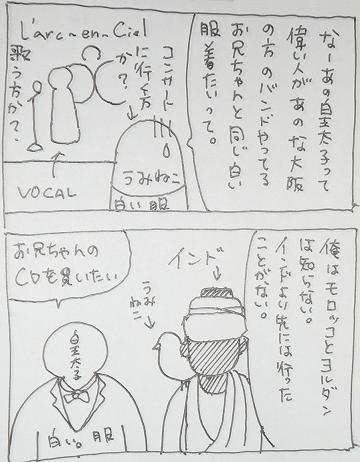 なーあの白王太子って
偉い人があのな大阪
の方のバンドやってる
お兄ちゃんと同じ白い
服着たいって。
コンサート
に行く方
か？
L'arc~en~Ciel
歌う方か？
VOCAL
うみねこ
白い服
俺はモロッコとヨルダン
は知らない。
インドより先には行った
ことがない。
インド
うみ
ねこ
お兄ちゃんの
CDを買いたい
白王太子
白い。服